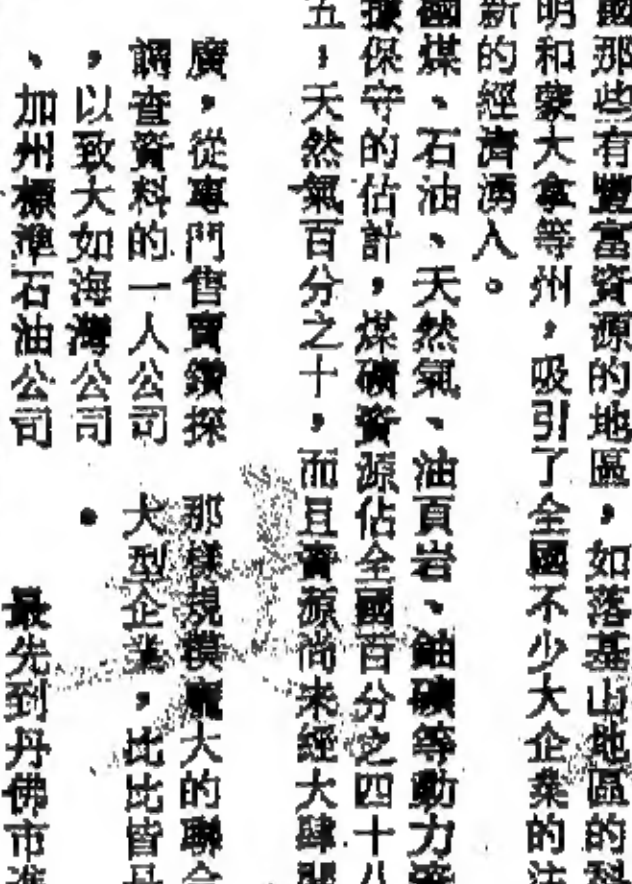 國那些有豐富資源的地區，如落基山地區的科
明和蒙大拿等州，吸引了全國不少大企業的注
新的經濟湧入。
國煤、石油、天然氣、油頁岩、鈾礦等動力資
據保守的估計，煤礦資源佔全國百分之四十八
五，天然氣百分之十，而且資源尚未經大肆開
廣，從專門售賣鑽探
調查資料的一人公司
，以致大如海灣公司
、加州標準石油公司
那樣規模龐大的聯合
大型企業，比比皆是
。
最先到丹佛市進